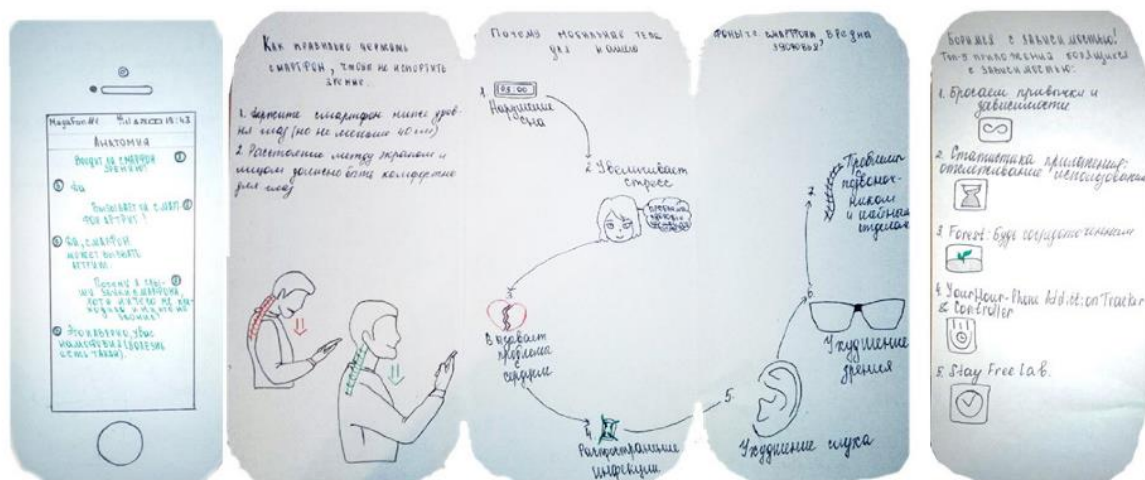 MegaFon #1 18:43
Анатомия
Вредит ли смартфон
зрению?
Да
Вызывает ли смарт
фон артрит?
Да, смартфон
может вызвать
артрит.
Почему я слы-
шу звонки
хотя
Это наверно, у вас
(болезнь
есть такая).
Как правильно держать
смартфон, чтобы не испортить
зрение.
1. Держите смартфон ниже уров-
ня глаз (но не меньше 40 см)
2. Расстояние между экраном и
лицом должно быть комфортно
для глаз
Почему мобильные теле
для нашего
1. 03:00
Нарушение
сна
2. Увеличивает
стресс
3.
Вызывает
проблемы
сердцем
4.
Распространение
инфекции
фоны, т.е. смартфоны, вредны
здоровья?
5.
Ухудшение слуха
6.
Ухудшение
зрения
7. Проблемы
с
позвоноч-
ником
и шейным
отделом
Боримся с зависимостью!
Топ-5 приложений
с зависимостью:
1. Бросаем привычки и
зависимости
2. Статистика приложения:
отслеживание использования
3. Forest: Будь сосредоточенным
4. YourHour-Phone Addiction Tracker
& Controller
5. Stay Free Lab.